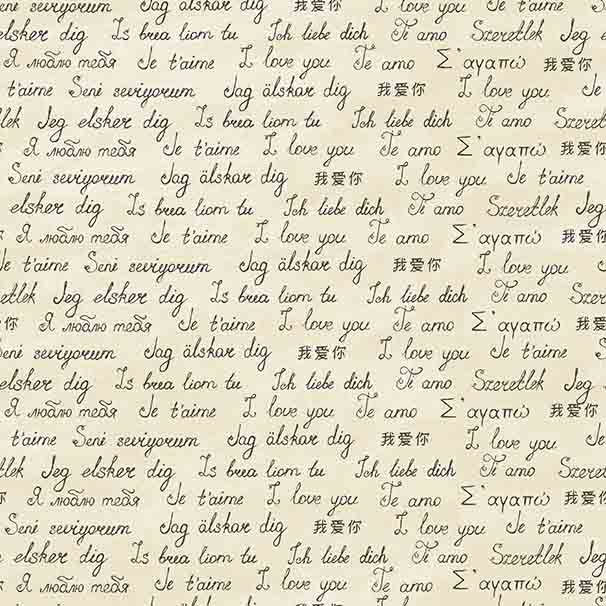 Seni seviyorum Jag älskar dig 我爱你 I love you Te amo Szeretlek
elsker dig Is brea liom tu Ich liebe dich Ti amo Szeretlek Jeg
Я люблю тебя Je t'aime I love you Te amo Σ΄αγαπώ 我爱你
t'aime Seni seviyorum Jag älskar dig 我爱你 I love you Je
Jeg elsker dig Is brea liom tu Ich liebe dich Ti amo
Я люблю тебя Je t'aime I love you Te amo Σ΄αγαπώ 我爱你
Seni seviyorum Jag älskar dig 我爱你 I love you Je t'aime
elsker dig Is brea liom tu Ich liebe dich Ti amo Szeretlek
Я люблю тебя Je t'aime I love you Te amo Σ΄αγαπώ 我爱你
Je t'aime Seni seviyorum Jag älskar dig 我爱你 I love you
Jeg elsker dig Is brea liom tu Ich liebe dich Ti amo
你 Я люблю тебя Je t'aime I love you Te amo Σ΄αγαπώ 我爱
Seni seviyorum Jag älskar dig 我爱你 I love you Je t'aime
elsker dig Is brea liom tu Ich liebe dich Ti amo Szeretlek Jeg
Я люблю тебя Je t'aime I love you Te amo Σ΄αγαπώ 我爱你
t'aime Seni seviyorum Jag älskar dig 我爱你 I love you Je
Jeg elsker dig Is brea liom tu Ich liebe dich Ti amo
Я люблю тебя Je t'aime I love you Te amo Σ΄αγαπώ 我爱你
Seni seviyorum Jag älskar dig 我爱你 I love you Je t'aime
elsker dig Is brea liom tu Ich liebe dich Ti amo Szeretlek
Я люблю тебя Je t'aime I love you Te amo Σ΄αγαπώ 我爱你